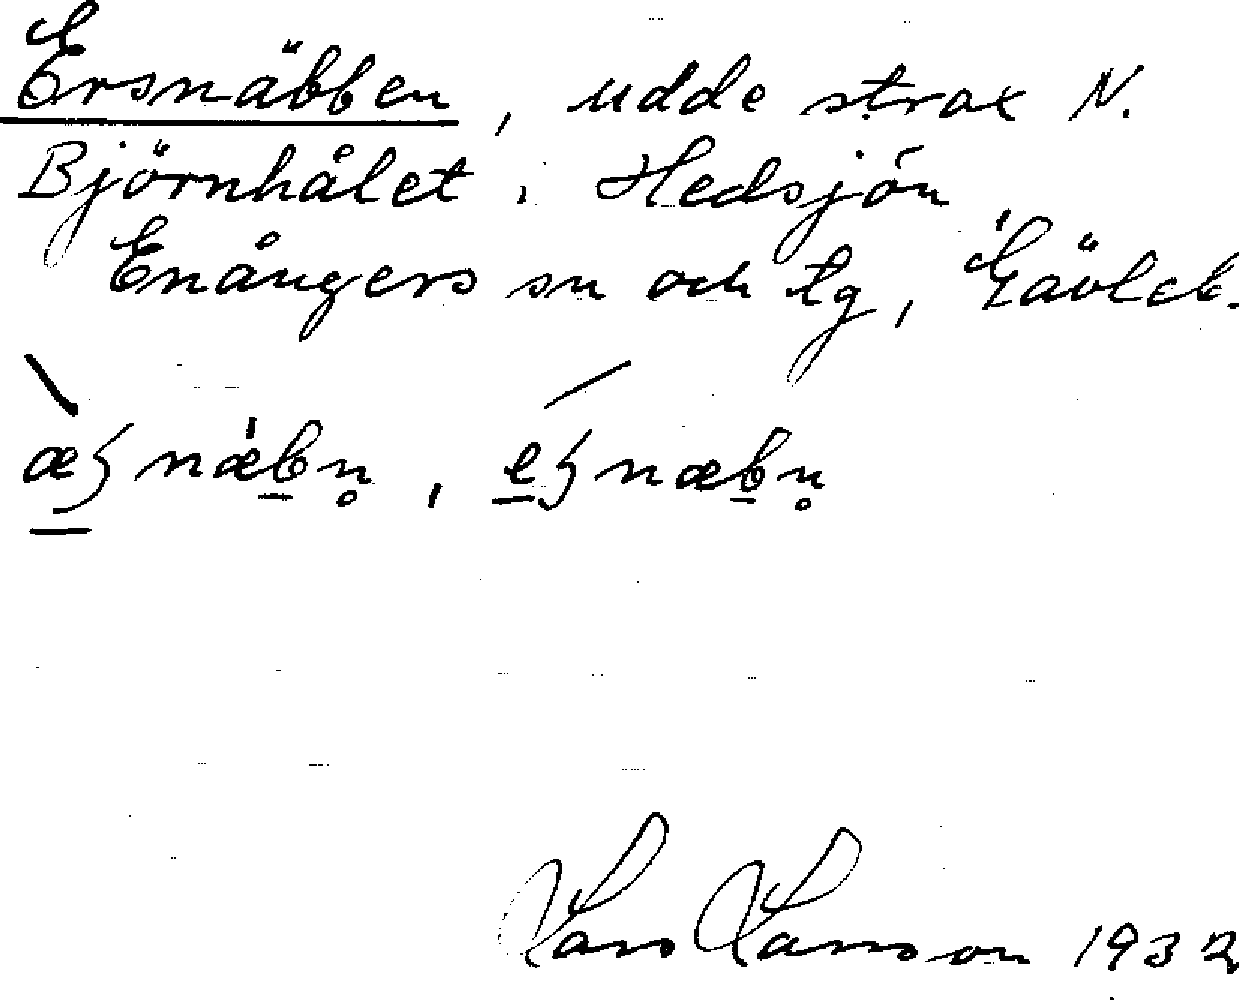 Ersnäbben, udde strax N.
Björnhålet i Hedsjön
Enångers sn och tg, Gävleb.
Lars Larsson 1932